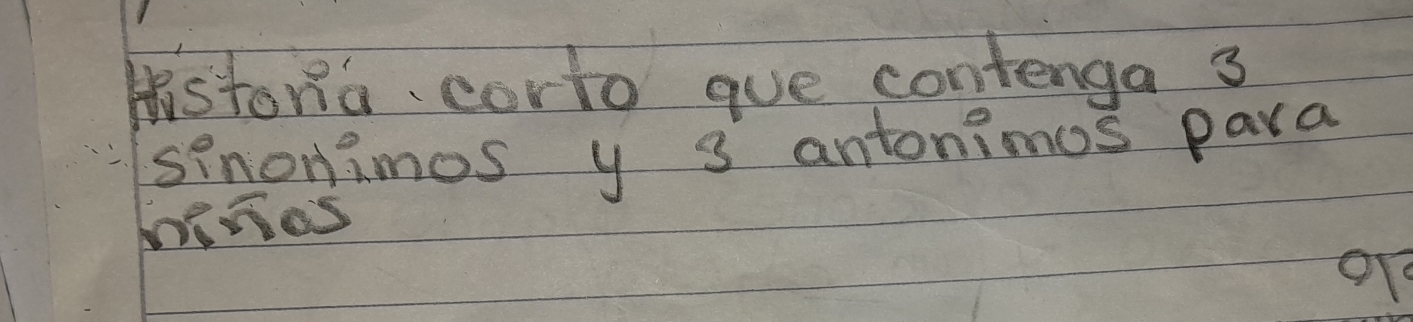 Historia corto que contenga 3
sinonimos y 3 antonimos para
niños